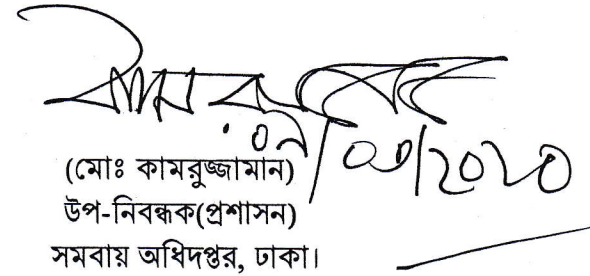 ০৭/০৬/২০২০
(মোঃ কামরুজ্জামান)
উপ-নিবন্ধক(প্রশাসন)
সমবায় অধিদপ্তর, ঢাকা।